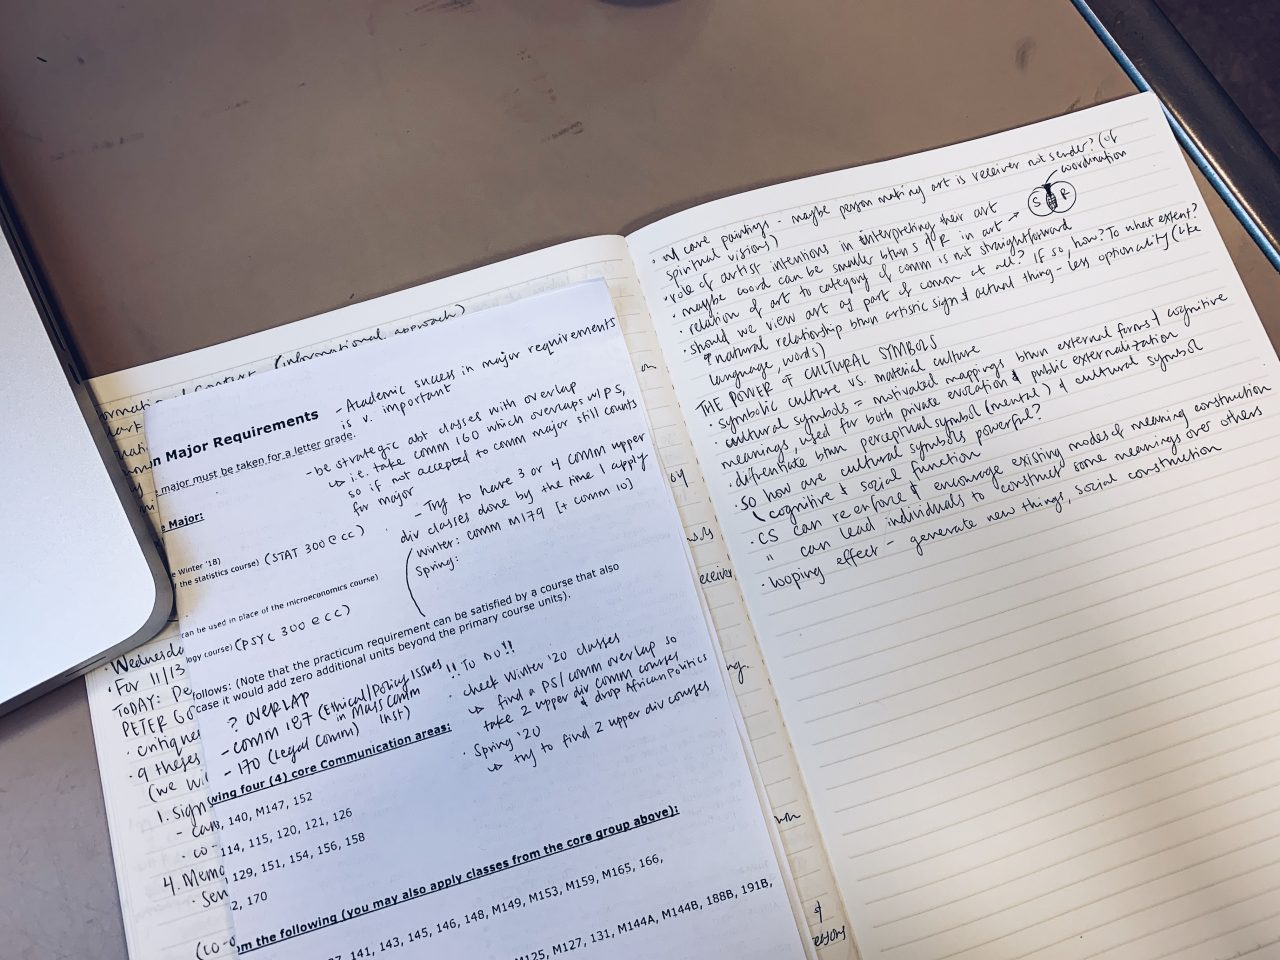 (informational approach)
n Major Requirements
- Academic success in major requirements
is v. important
e major must be taken for a letter grade.
- be strategic abt classes with overlap
↳ i.e. take comm 160 which overlaps w/ PS,
so if not accepted to comm major still counts
for major
e Major:
- Try to have 3 or 4 comm upper
div classes done by the time I apply
Winter: comm M179 [+ comm 10]
Spring:
e Winter '18)
the statistics course) (STAT 300 @ CC)
can be used in place of the microeconomics course)
logy course) (PSYC 300 @ CC)
follows: (Note that the practicum requirement can be satisfied by a course that also
case it would add zero additional units beyond the primary course units).
? OVERLAP
- COMM 187 (Ethical/Policy Issues
in Mass Comm
Inst)
- 170 (Legal Comm)
!! To Do!!
· check Winter '20 classes
↳ find a PS/comm overlap so
take 2 upper div comm courses
& drop African Politics
· Spring '20
↳ try to find 2 upper div courses
wing four (4) core Communication areas:
, 140, M147, 152
114, 115, 120, 121, 126
129, 151, 154, 156, 158
2, 170
om the following (you may also apply classes from the core group above):
7, 141, 143, 145, 146, 148, M149, M153, M159, M165, 166,
M125, M127, 131, M144A, M144B, 188B, 191B,
· Wednesda
· For 11/13
TODAY: Pe
PETER GO
· critique
· 9 theses
(we wi
1. Sign
- can
· co-
4. Memo
· Sen
(co-o
· w/ cave paintings - maybe person making art is receiver not sender? (of
spiritual visions)
· role of artist intentions in interpreting their art
· maybe coord can be smaller btwn S & R in art →
S R
coordination
· relation of art to category of comm is not straightforward
· should we view art as part of comm at all? If so, how? To what extent?
↑ natural relationship btwn artistic sign & actual thing - less optionality (like
language, words)
THE POWER OF CULTURAL SYMBOLS
· symbolic culture vs. material culture
· cultural symbols = motivated mappings btwn external forms & cognitive
meanings, used for both private evocation & public externalization
· difrentiate btwn perceptual symbol (mental) & cultural symbol
· so how are cultural symbols powerful?
cognitive & social function
· CS can reenforce & encourage existing modes of meaning construction
" can lead individuals to construct some meanings over others
· looping effect - generate new things, social construction